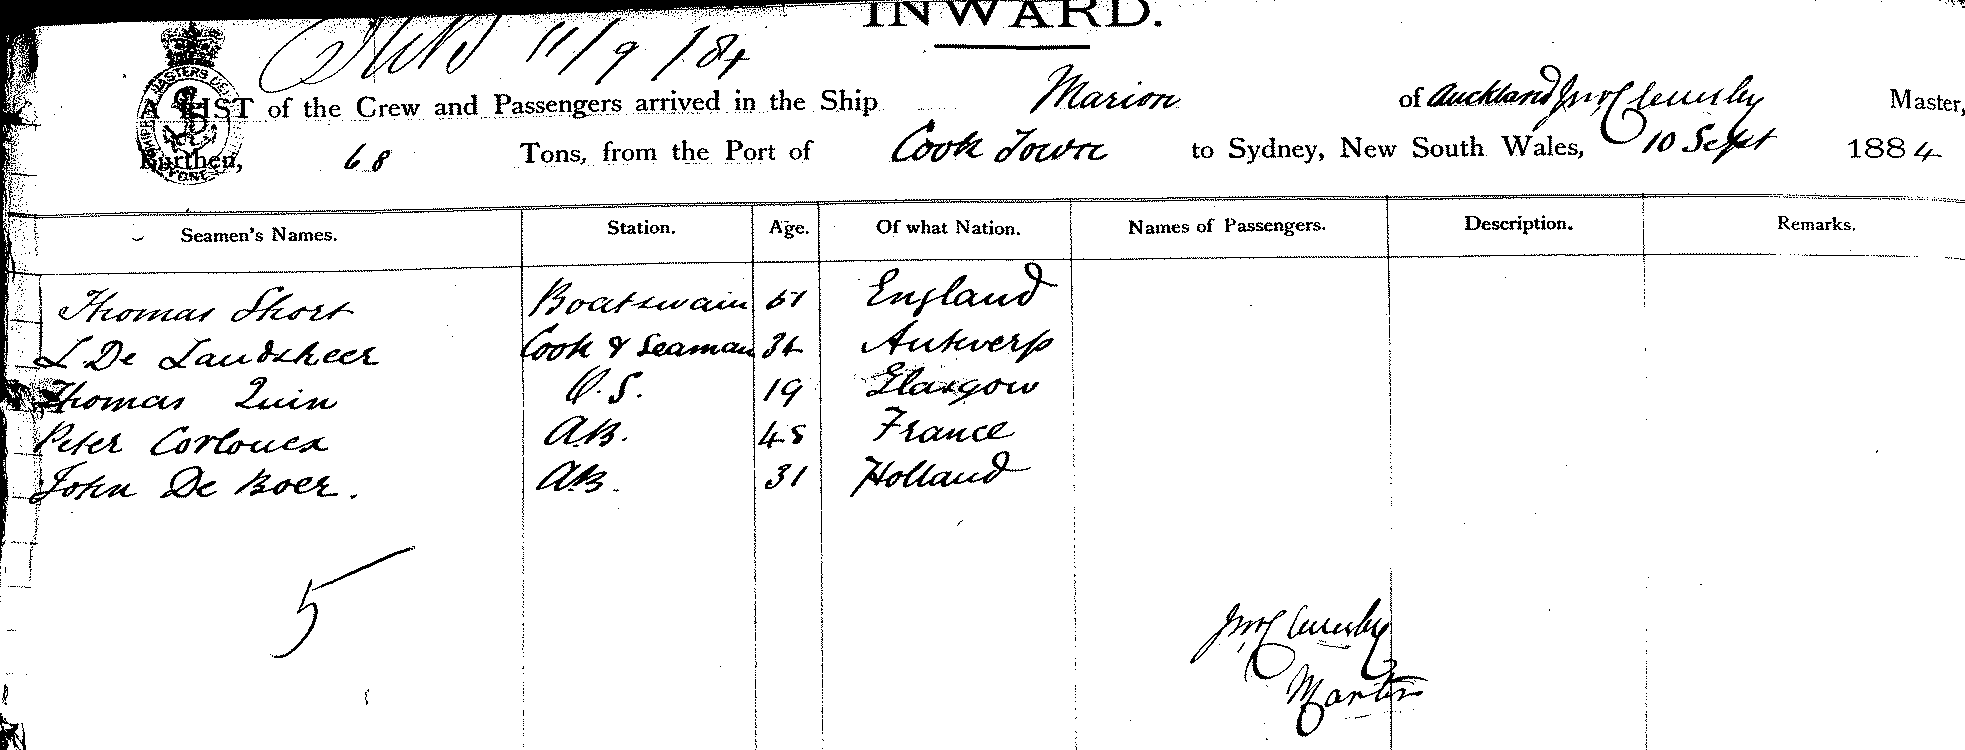 INWARD.
11/9/84
A LIST of the Crew and Passengers arrived in the Ship Marion of Auckland Jno Clemsby Master,
Burthen, 68 Tons, from the Port of Cook Town to Sydney, New South Wales, 10 Sept 1884
Seamen's Names. Station. Age. Of what Nation. Names of Passengers. Description. Remarks.
Thomas Short Boatswain 51 England
L De Landsheer Cook & Seaman 34 Antwerp
Thomas Quin O.S. 19 Glasgow
Peter Corlouex A.B. 45 France
John De Boer. A.B. 31 Holland
5
Jno Clemsby
Master